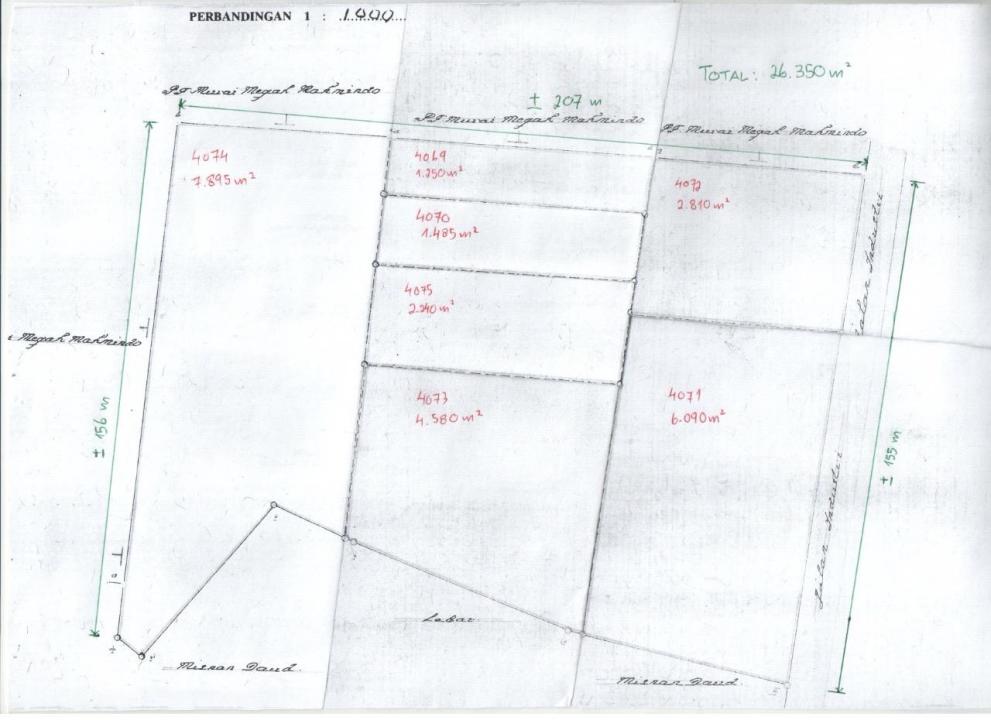 PERBANDINGAN 1 : 1.000
TOTAL : 26.350 m²
PT Murai Megah Makmindo
± 207 m
PT Murai Megah Makmindo
PT Murai Megah Makmindo
4074
7.895 m²
4069
1.250 m²
4072
2.810 m²
4070
1.485 m²
4075
2.240 m²
i Megah Makmindo
Jalan Industri
4073
4.580 m²
4071
6.090 m²
± 156 m
± 155 m
Jalan Industri
Lebar
Misran Daud
Misran Daud